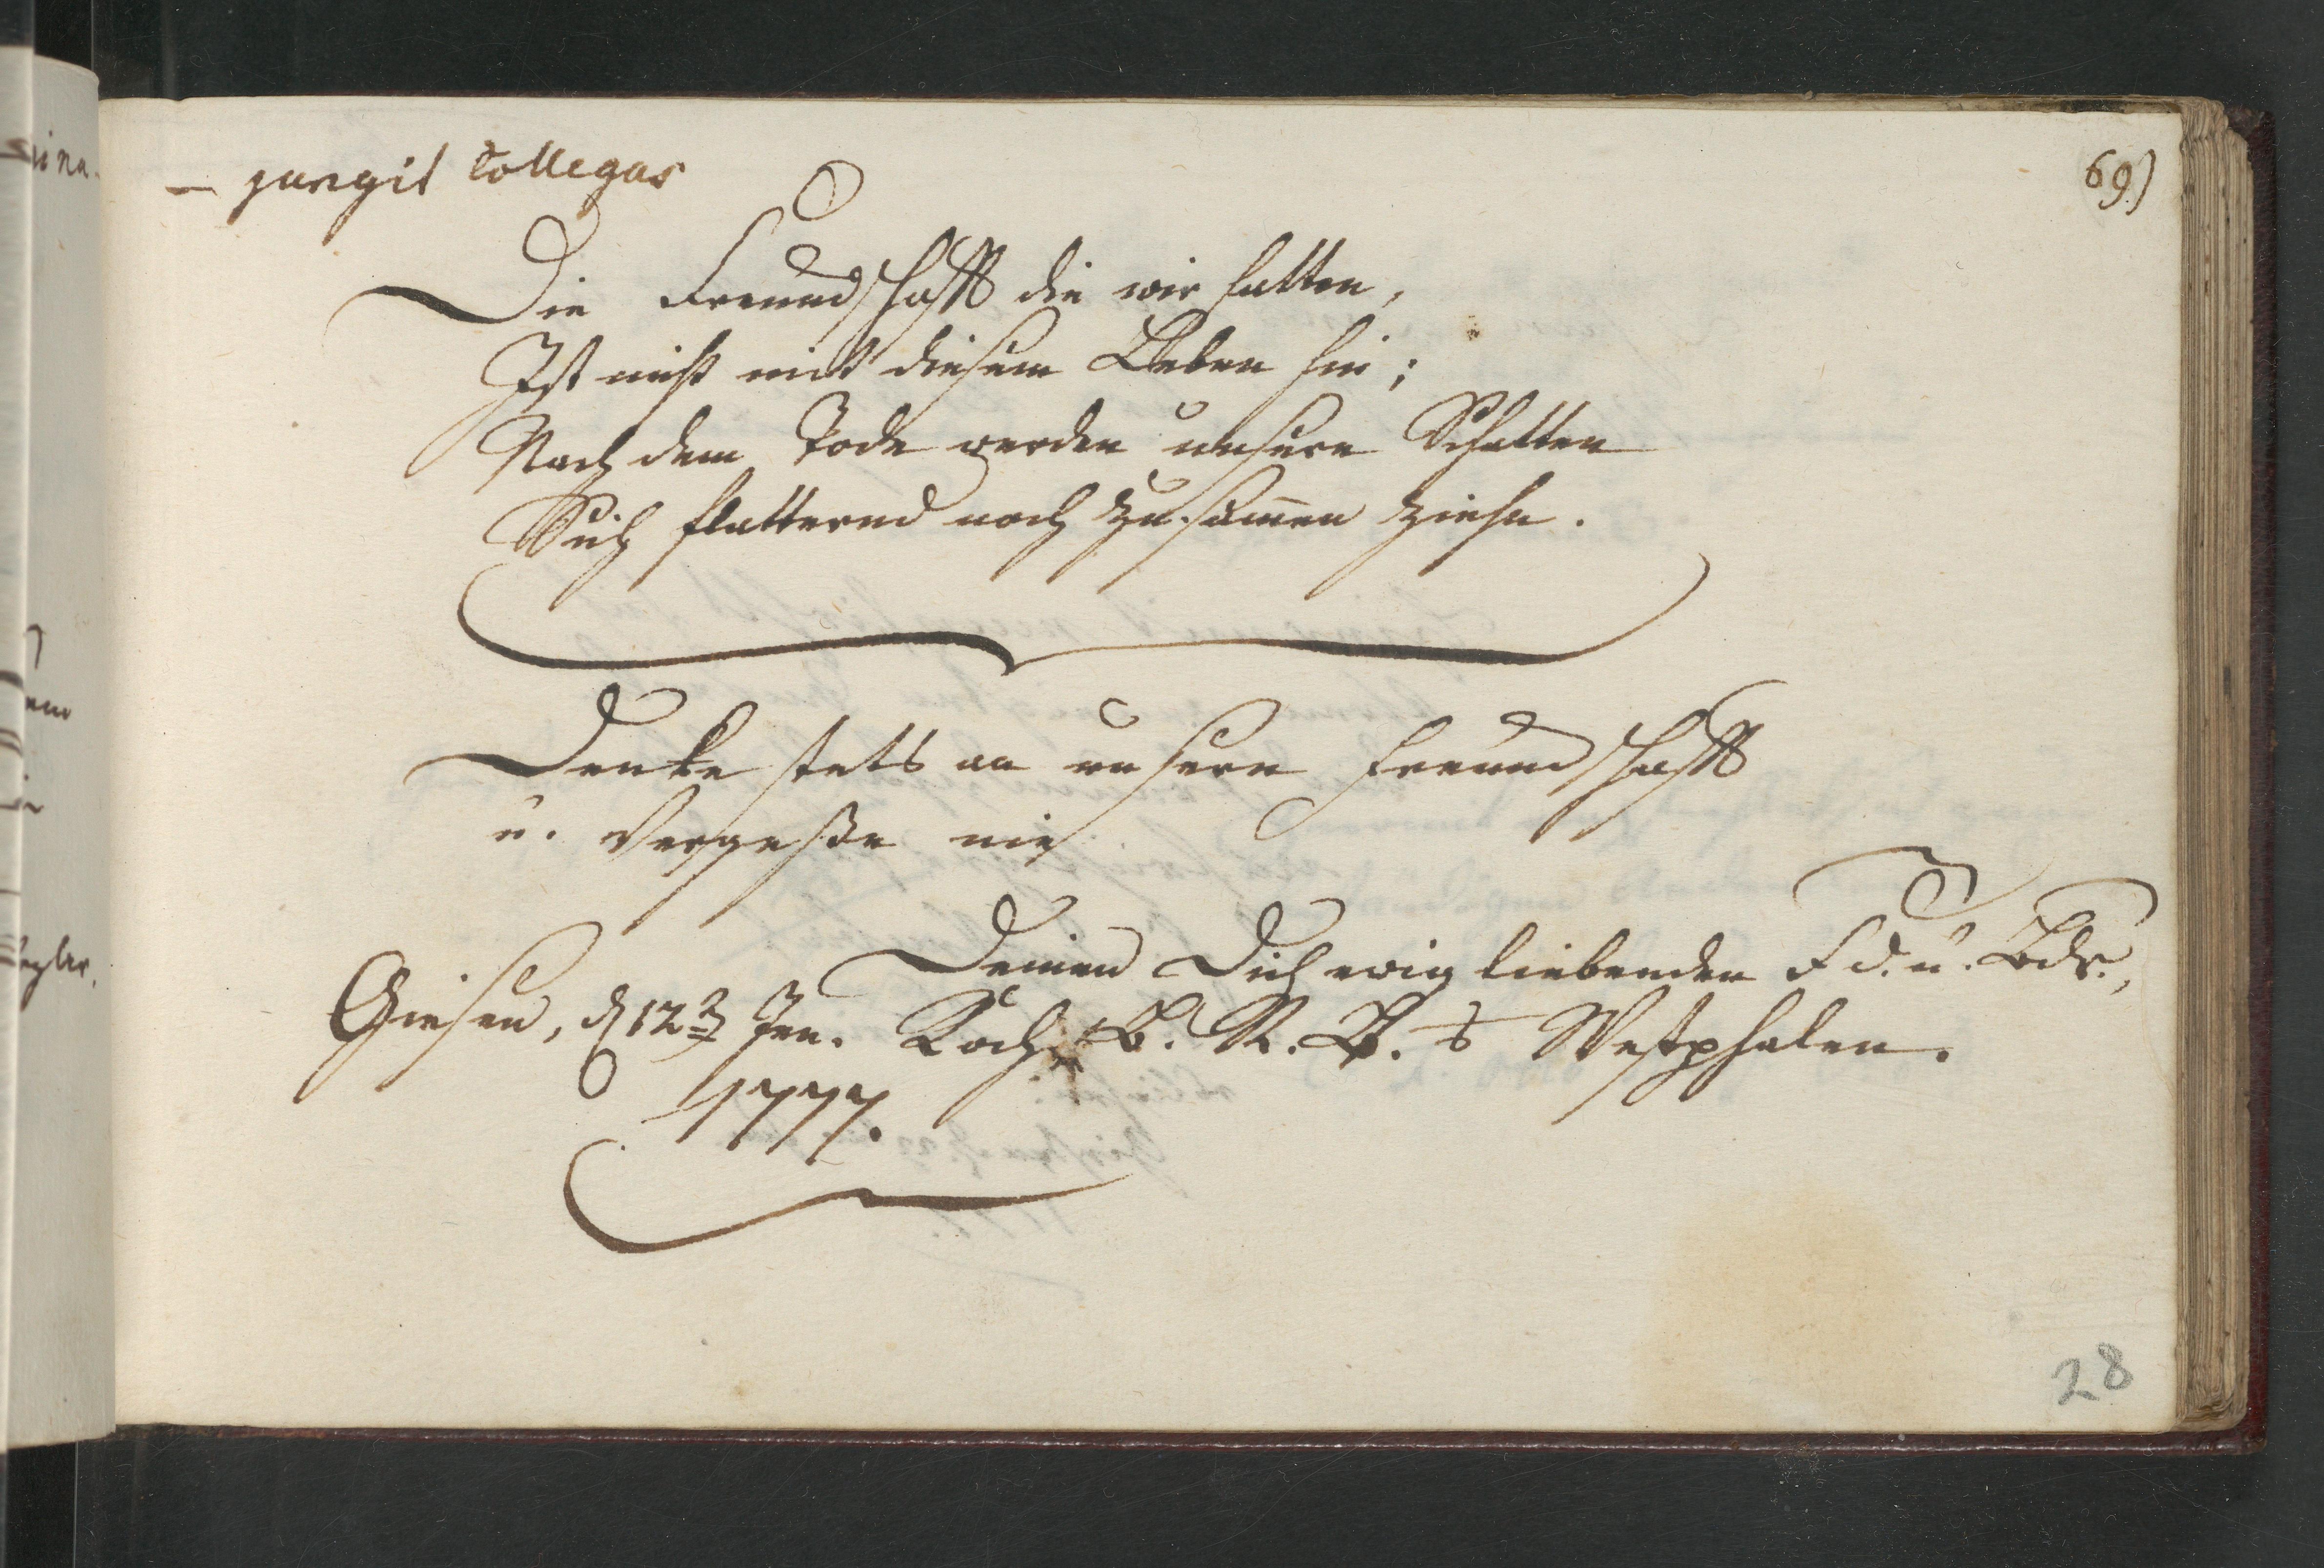 69)
— jungit collegas
Die Freundschafft die wir hatten,
Ist nicht mit diesem Leben hin;
Nach dem Tode werden unsere Schatten
Sich flatternd noch zusam̄en ziehn.
Denke stets an unsere Freundschafft
u. Vergeße nie
Deinen Dich ewig liebenden Fd. u. Bdr.,
Giesen, d 12 Jen. Koch, B. R. B. Westphalen.
1777.
28